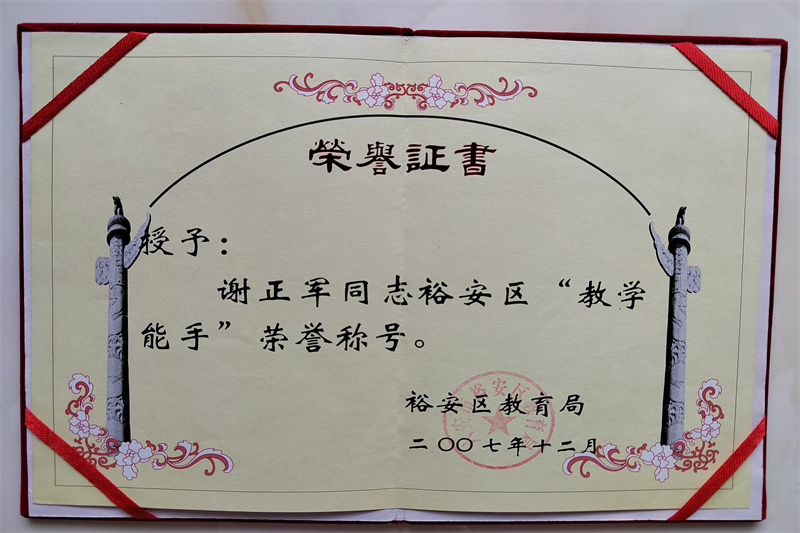 榮譽証書
授予：
谢正军同志裕安区“教学
能手”荣誉称号。
裕安区教育局
二〇〇七年十二月